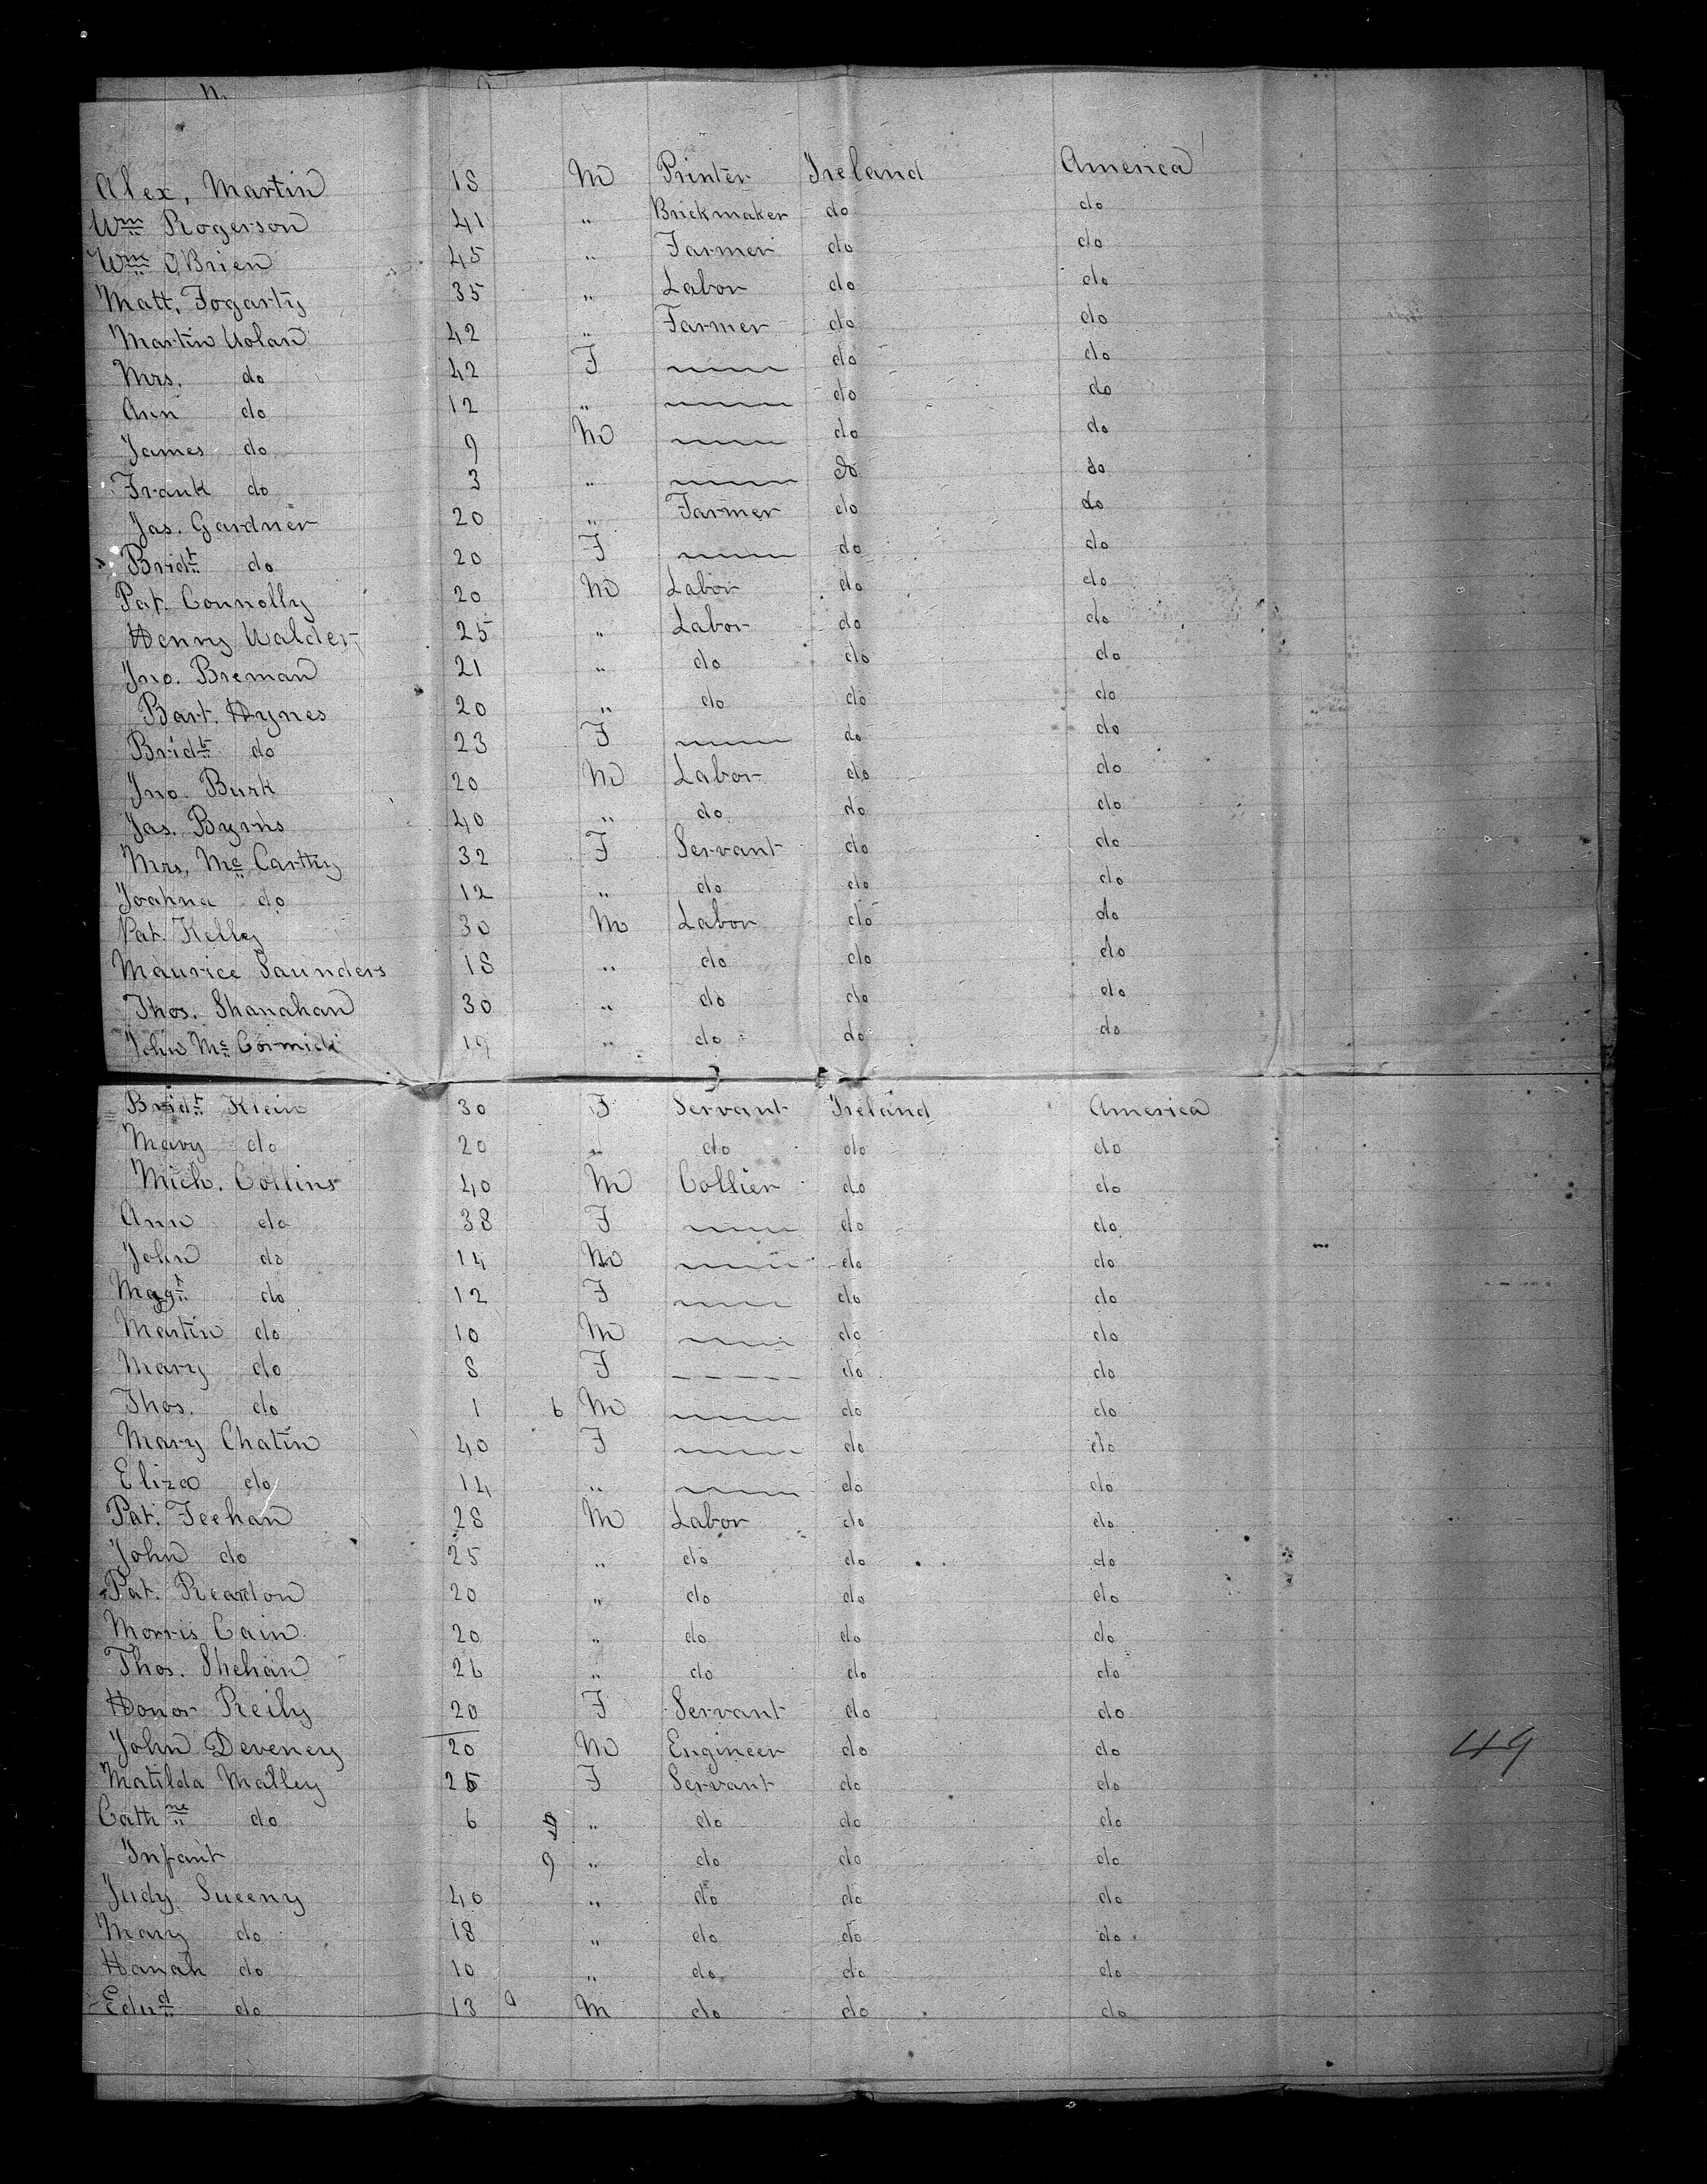 Alex, Martin 18 M Printer Ireland America
Wm Rogerson 41 " Brickmaker do do
Wm O'Brien 45 " Farmer do do
Matt, Fogarty 35 " Labor do do
Martin Nolan 42 " Farmer do do
Mrs. do 42 F do do
Ann do 12 " do do
James do 9 M do do
Frank do 3 " do do
Jas. Gardner 20 " Farmer do do
Bridt do 20 F do do
Pat. Connolly 20 M Labor do do
Henry Walder 25 " Labor do do
Jno. Breman 21 " do do do
Bart. Hynes 20 " do do do
Bridt do 23 F do do
Jno. Burk 20 M Labor do do
Jas. Byrns 40 " do do do
Mrs, Mc Carthy 32 F Servant do do
Joahna do 12 " do do do
Pat. Kelley 30 M Labor do do
Maurice Saunders 18 " do do do
Thos. Shanahan 30 " do do do
John Mc Cormick 19 " do do do
Bridt Klein 30 F Servant Ireland America
Mary do 20 " do do do
Mich. Collins 40 M Collier do do
Ann do 38 F do do
John do 14 M do do
Magt do 12 F do do
Martin do 10 M do do
Mary do 8 F do do
Thos. do 1 6 M do do
Mary Chatin 40 F do do
Eliza do 14 " do do
Pat. Feehan 28 M Labor do do
John do 25 " do do do
Pat. Reardon 20 " do do do
Morris Cain 20 " do do do
Thos. Shehan 26 " do do do
Honor Reily 20 F Servant do do
John Deveney 20 M Engineer do do 49
Matilda Malley 25 F Servant do do
Cathne do 6 " do do do
Infant 9 " do do do
Judy Sueeny 40 " do do do
Mary do 18 " do do do
Hanah do 10 " do do do
Edwd do 13 M do do do